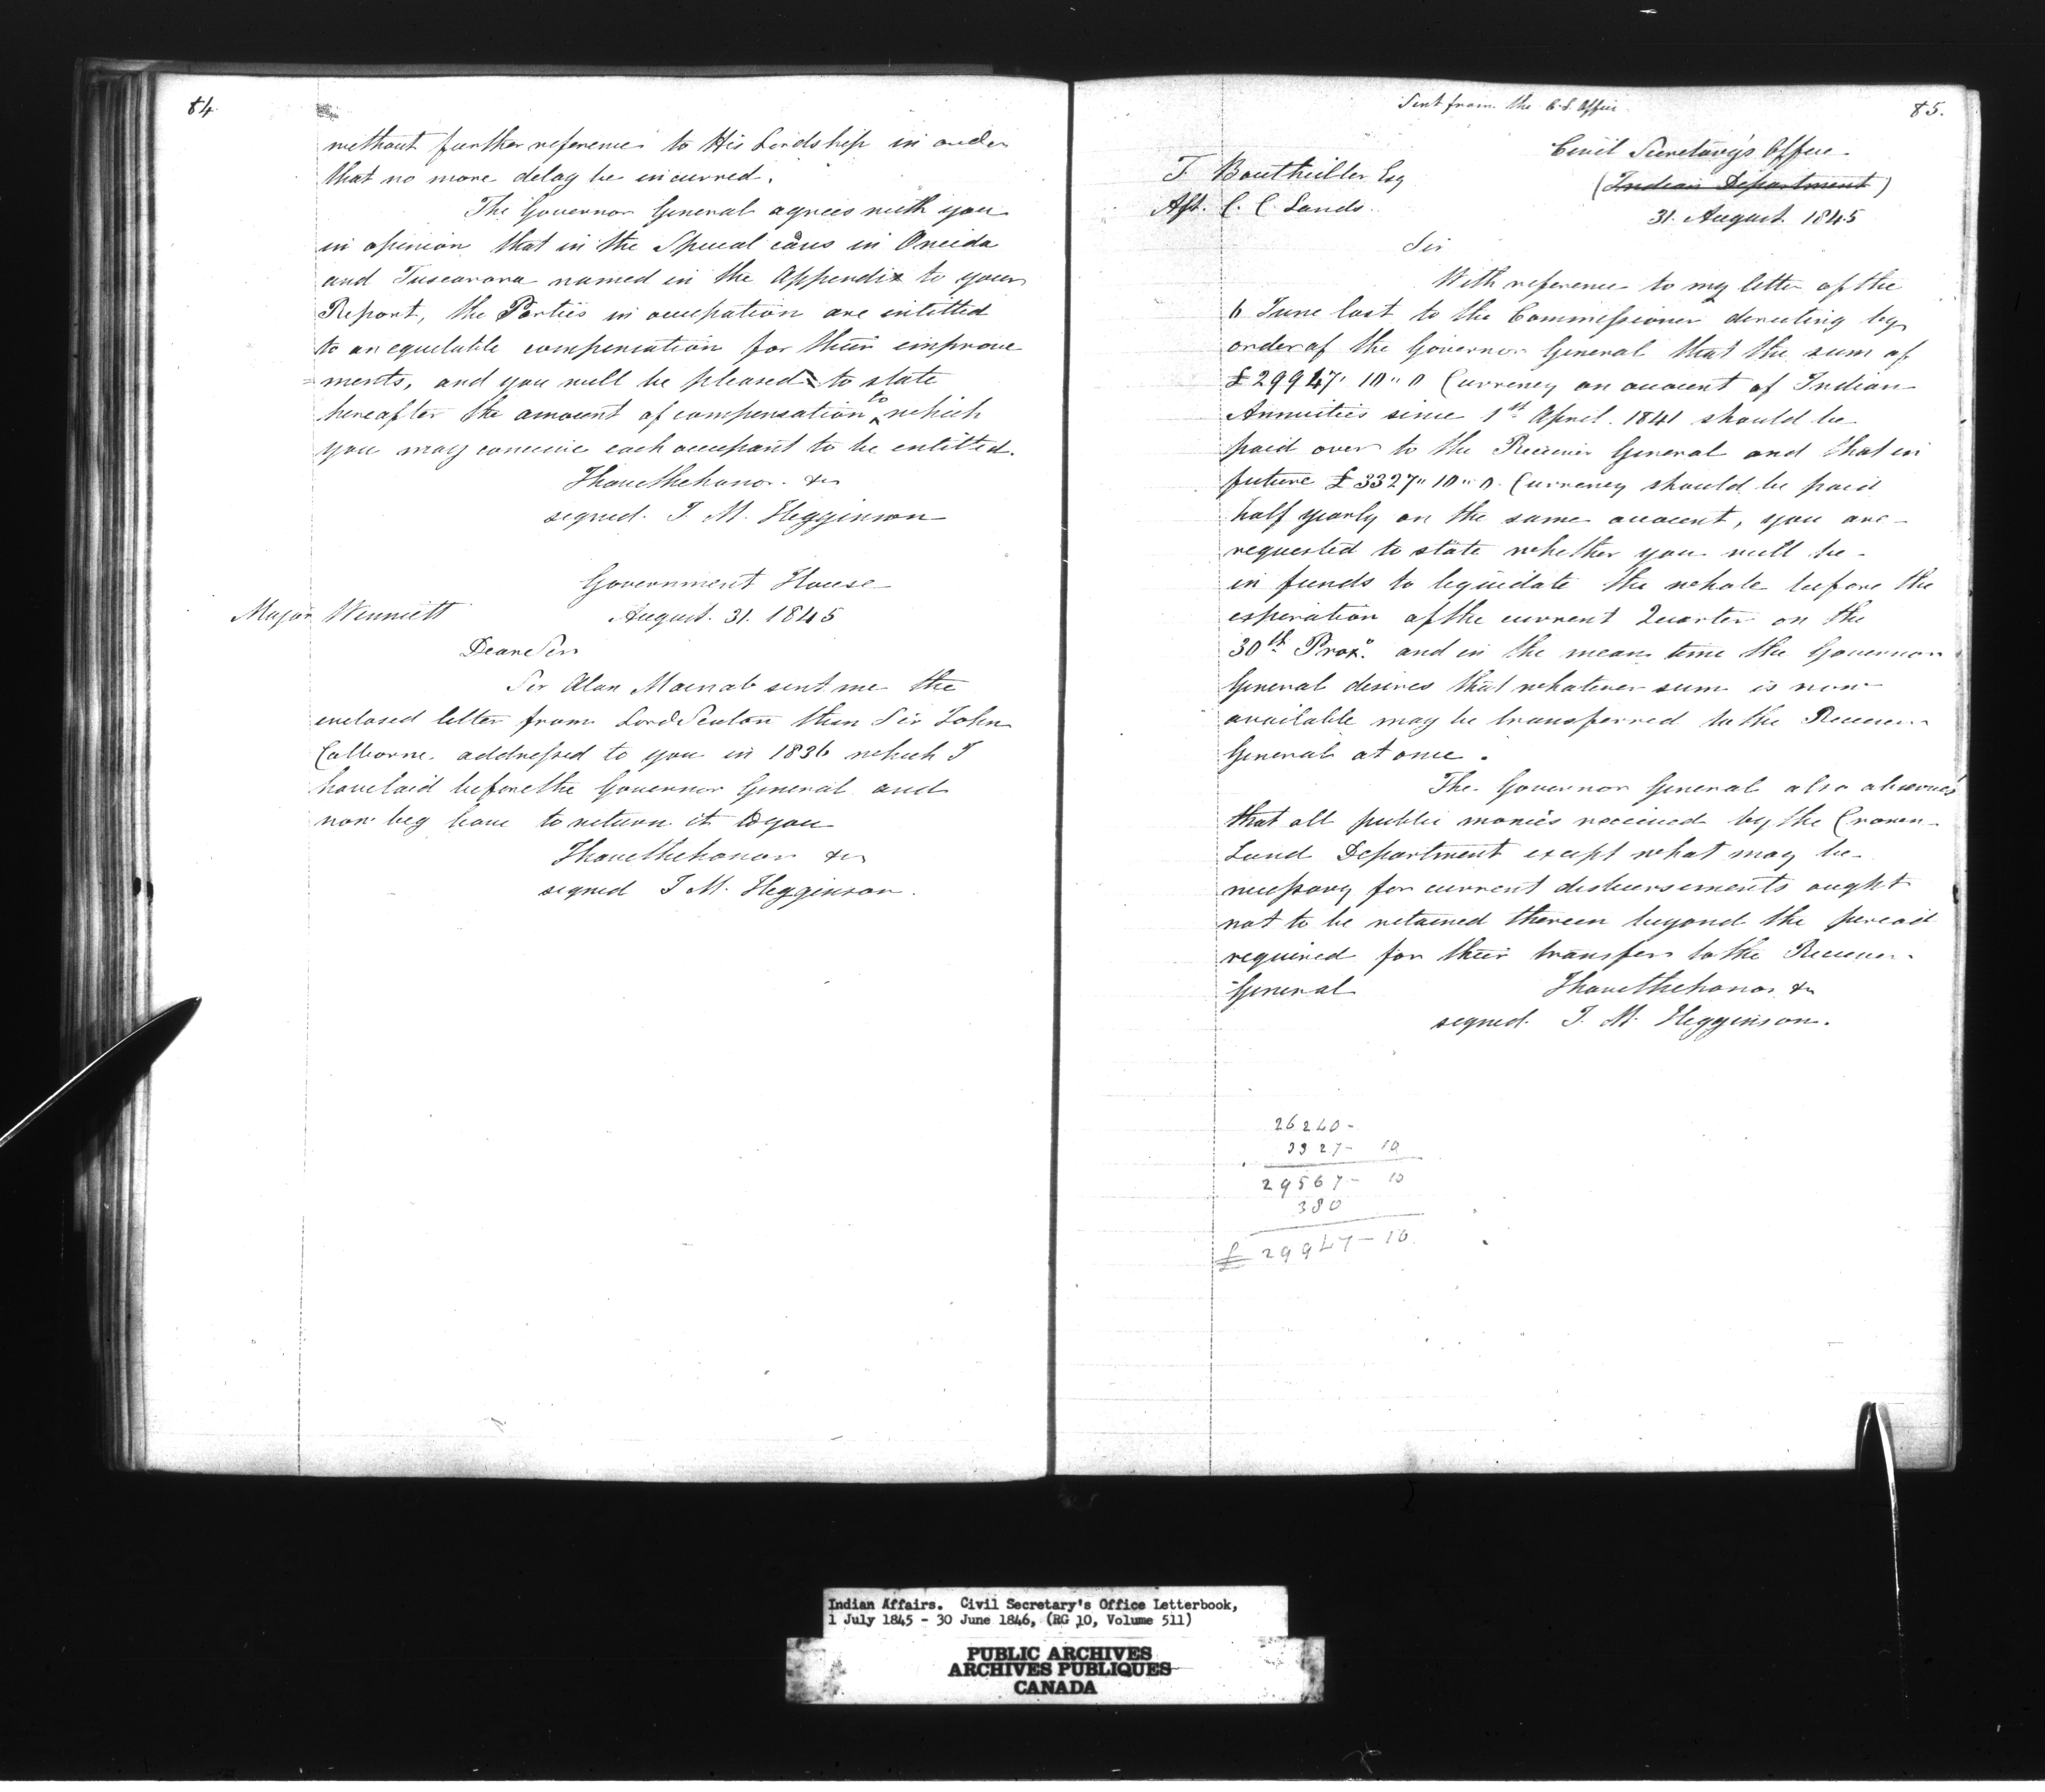 84
without further reference to His Lordship in order
that no more delay be incurred.
The Governor General agrees with you
in opinion that in the Special cases in Oneida
and Tuscarora named in the Appendix to your
Report, the Parties in occupation are intitted
to an equitable compensation for their improve
=ments, and you will be pleased to state
hereafter the amount of compensation to which
you may conceive each occupant to be entitted.
I have the honor &c
signed. J. M. Higginson
Government House
Major Winniett August. 31. 1845
Dear Sir
Sir Alan Macnab sent me the
enclosed letter from Lord Seaton then Sir John
Colborne. addressed to you in 1836 which I
have laid before the Governor General and
now beg leave to return it to you
I have the honor &c
signed J M. Higginson.
Sent from the C. S. Office
85.
Civil Secretary's Office
T Bouthillier Esq (Indian Department)
Asst. C. C. Lands. 31. August. 1845
Sir
With reference to my letter of the
6 June last to the Commissioner directing by
order of the Governor General that the sum of
£29947" 10" 0 Currency on account of Indian
Annuities since 1st April. 1841 should be
paid over to the Receiver General and that in
future £3327" 10" 0. Currency should be paid
half yearly on the same account, you are
requested to state whether you will be
in funds to liquidate the whole before the
expiration of the current Quarter on the
30th Proxo. and in the mean time the Governor
General desires that whatever sum is now
available may be transferred to the Receiver
General at once.
The Governor General also observes
that all public monies received by the Crown
Land Department except what may be
necessary for current disbursements ought
not to be retained therein beyond the period
required for their transfer to the Receiver
General I have the honor &c
signed. J. M. Higginson.
26240-
3327- 10
29567- 10
380
£ 29947-10
Indian Affairs. Civil Secretary's Office Letterbook,
1 July 1845 - 30 June 1846, (RG 10, Volume 511)
PUBLIC ARCHIVES
ARCHIVES PUBLIQUES
CANADA